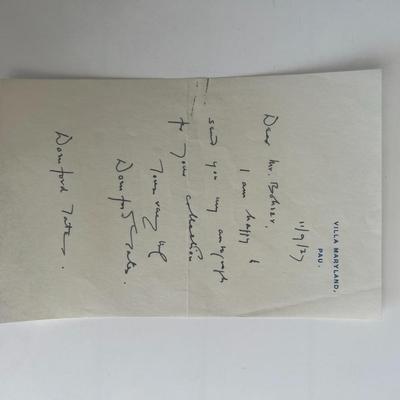 VILLA MARYLAND,
PAU.
11/9/27
Dear Mr.
I am happy to
send you my autograph
for your collection
Yours very
Dornford Yates.
Dornford Yates.